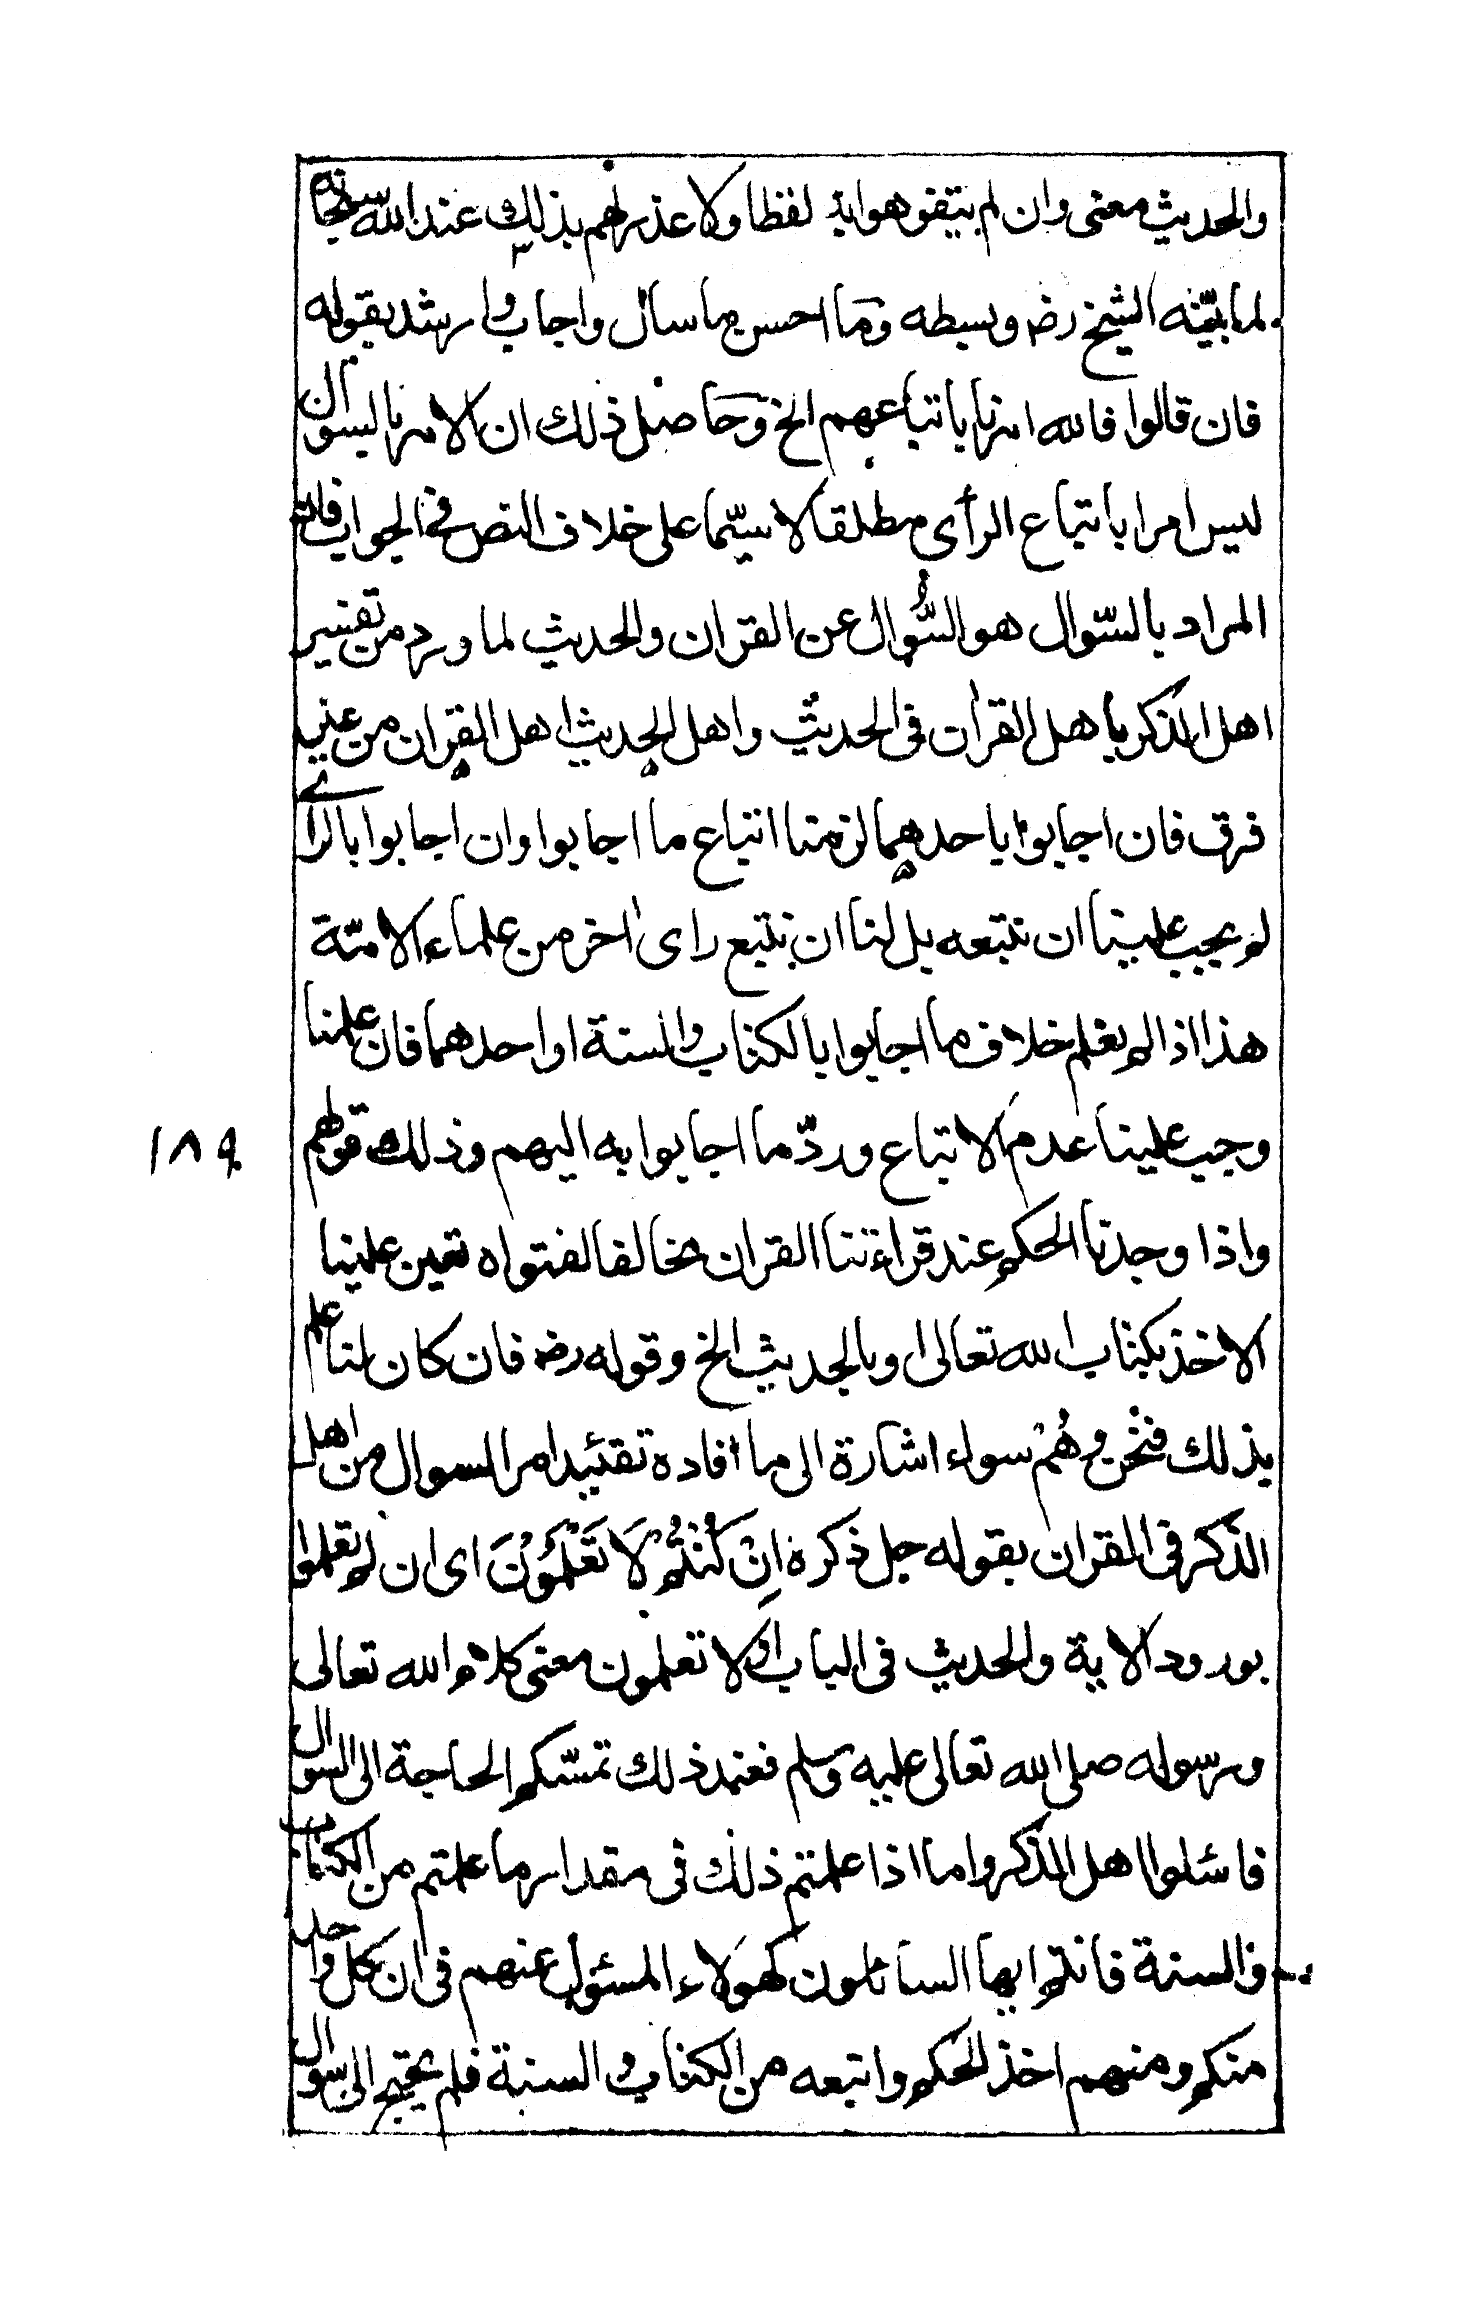 والحديث معنى وان لم يتفوهوا به لفظا ولا عذر لهم بذلك عند الله سبحانه
لما بيّنه الشيخ رضہ وبسطه وما احسن ما سأل واجاب وارشد بقوله
فان قالوا فالله امرنا باتباعهم الخ وحاصل ذلك ان الامر بالسوال
ليس امرا باتباع الرأى مطلقا لا سيّما على خلاف النص فى الجواب فان
المراد بالسّوال هو السُّوال عن القران والحديث لما ورد من تفسير
اهل الذكر باهل القرأن فى الحديث واهل الحديث اهل القران من غير
فرق فان اجابوا باحدهما لزمنا اتباع ما اجابوا وان اجابوا بالراے
لم يجب علينا ان نتبعه بل لنا ان نتبع راى اخر من علماء الامّة
هذا اذا لم يعلم خلاف ما اجابوا بالكتاب والسنة او احدهما فان علمنا
وجب علينا عدم الاتباع وردّ ما اجابوا به اليهم وذلك قولهم
واذا وجدنا الحكم عند قراءتنا القران مخالفا لفتواه تعين علينا
الاخذ بكتاب الله تعالى او بالحديث الخ وقوله رضہ فان كان لنا علم
بذلك فنحن وهُمْ سواء اشارة الى ما افاده تقئيد امر السوال من اهل
الذّكر فى القران بقوله جل ذكره اِنْ كُنْتُمْ لَا تَعْلَمُوْنَ اى ان لم تعلموا
بورود الاية والحديث فى الباب او لا تعلمون معنى كلام الله تعالى
ورسوله صلى الله تعالى عليه وسلم فعند ذلك تمسّكم الحاجة الى السوال
فاسئلوا اهل الذكر واما اذا علمتم ذلك فى مقدار ما علمتم من الكتاب
والسنة فانتم ايها السائلون كهولاء المسئول عنهم فى ان كل واحد
منكم ومنهم اخذ الحكم واتبعه من الكتاب والسنة فلم يحتج الى سوال
١٨٩